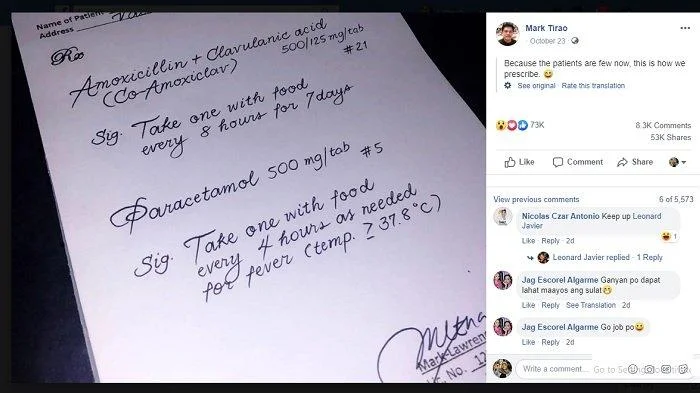 Name of Patient
Address
Rx
Amoxicillin + Clavulanic acid
(Co-Amoxiclav) 500/125 mg/tab
#21
Sig. Take one with food
every 8 hours for 7 days
Paracetamol 500 mg/tab #5
Sig. Take one with food
every 4 hours as needed
for fever (temp. ≥ 37.8°C)
Mark Lawren
No.
Mark Tirao
October 23
Because the patients are few now, this is how we
prescribe. 😅
See original · Rate this translation
73K
8.3K Comments
53K Shares
Like Comment Share
View previous comments 6 of 5,573
Nicolas Czar Antonio Keep up Leonard
Javier
1
Like · Reply · 2d
Leonard Javier replied · 1 Reply
Jag Escorel Algarme Ganyan po dapat
lahat maayos ang sulat😁
Like · Reply · See Translation · 2d
Jag Escorel Algarme Go job po😄
Like · Reply · 2d
Write a comment...